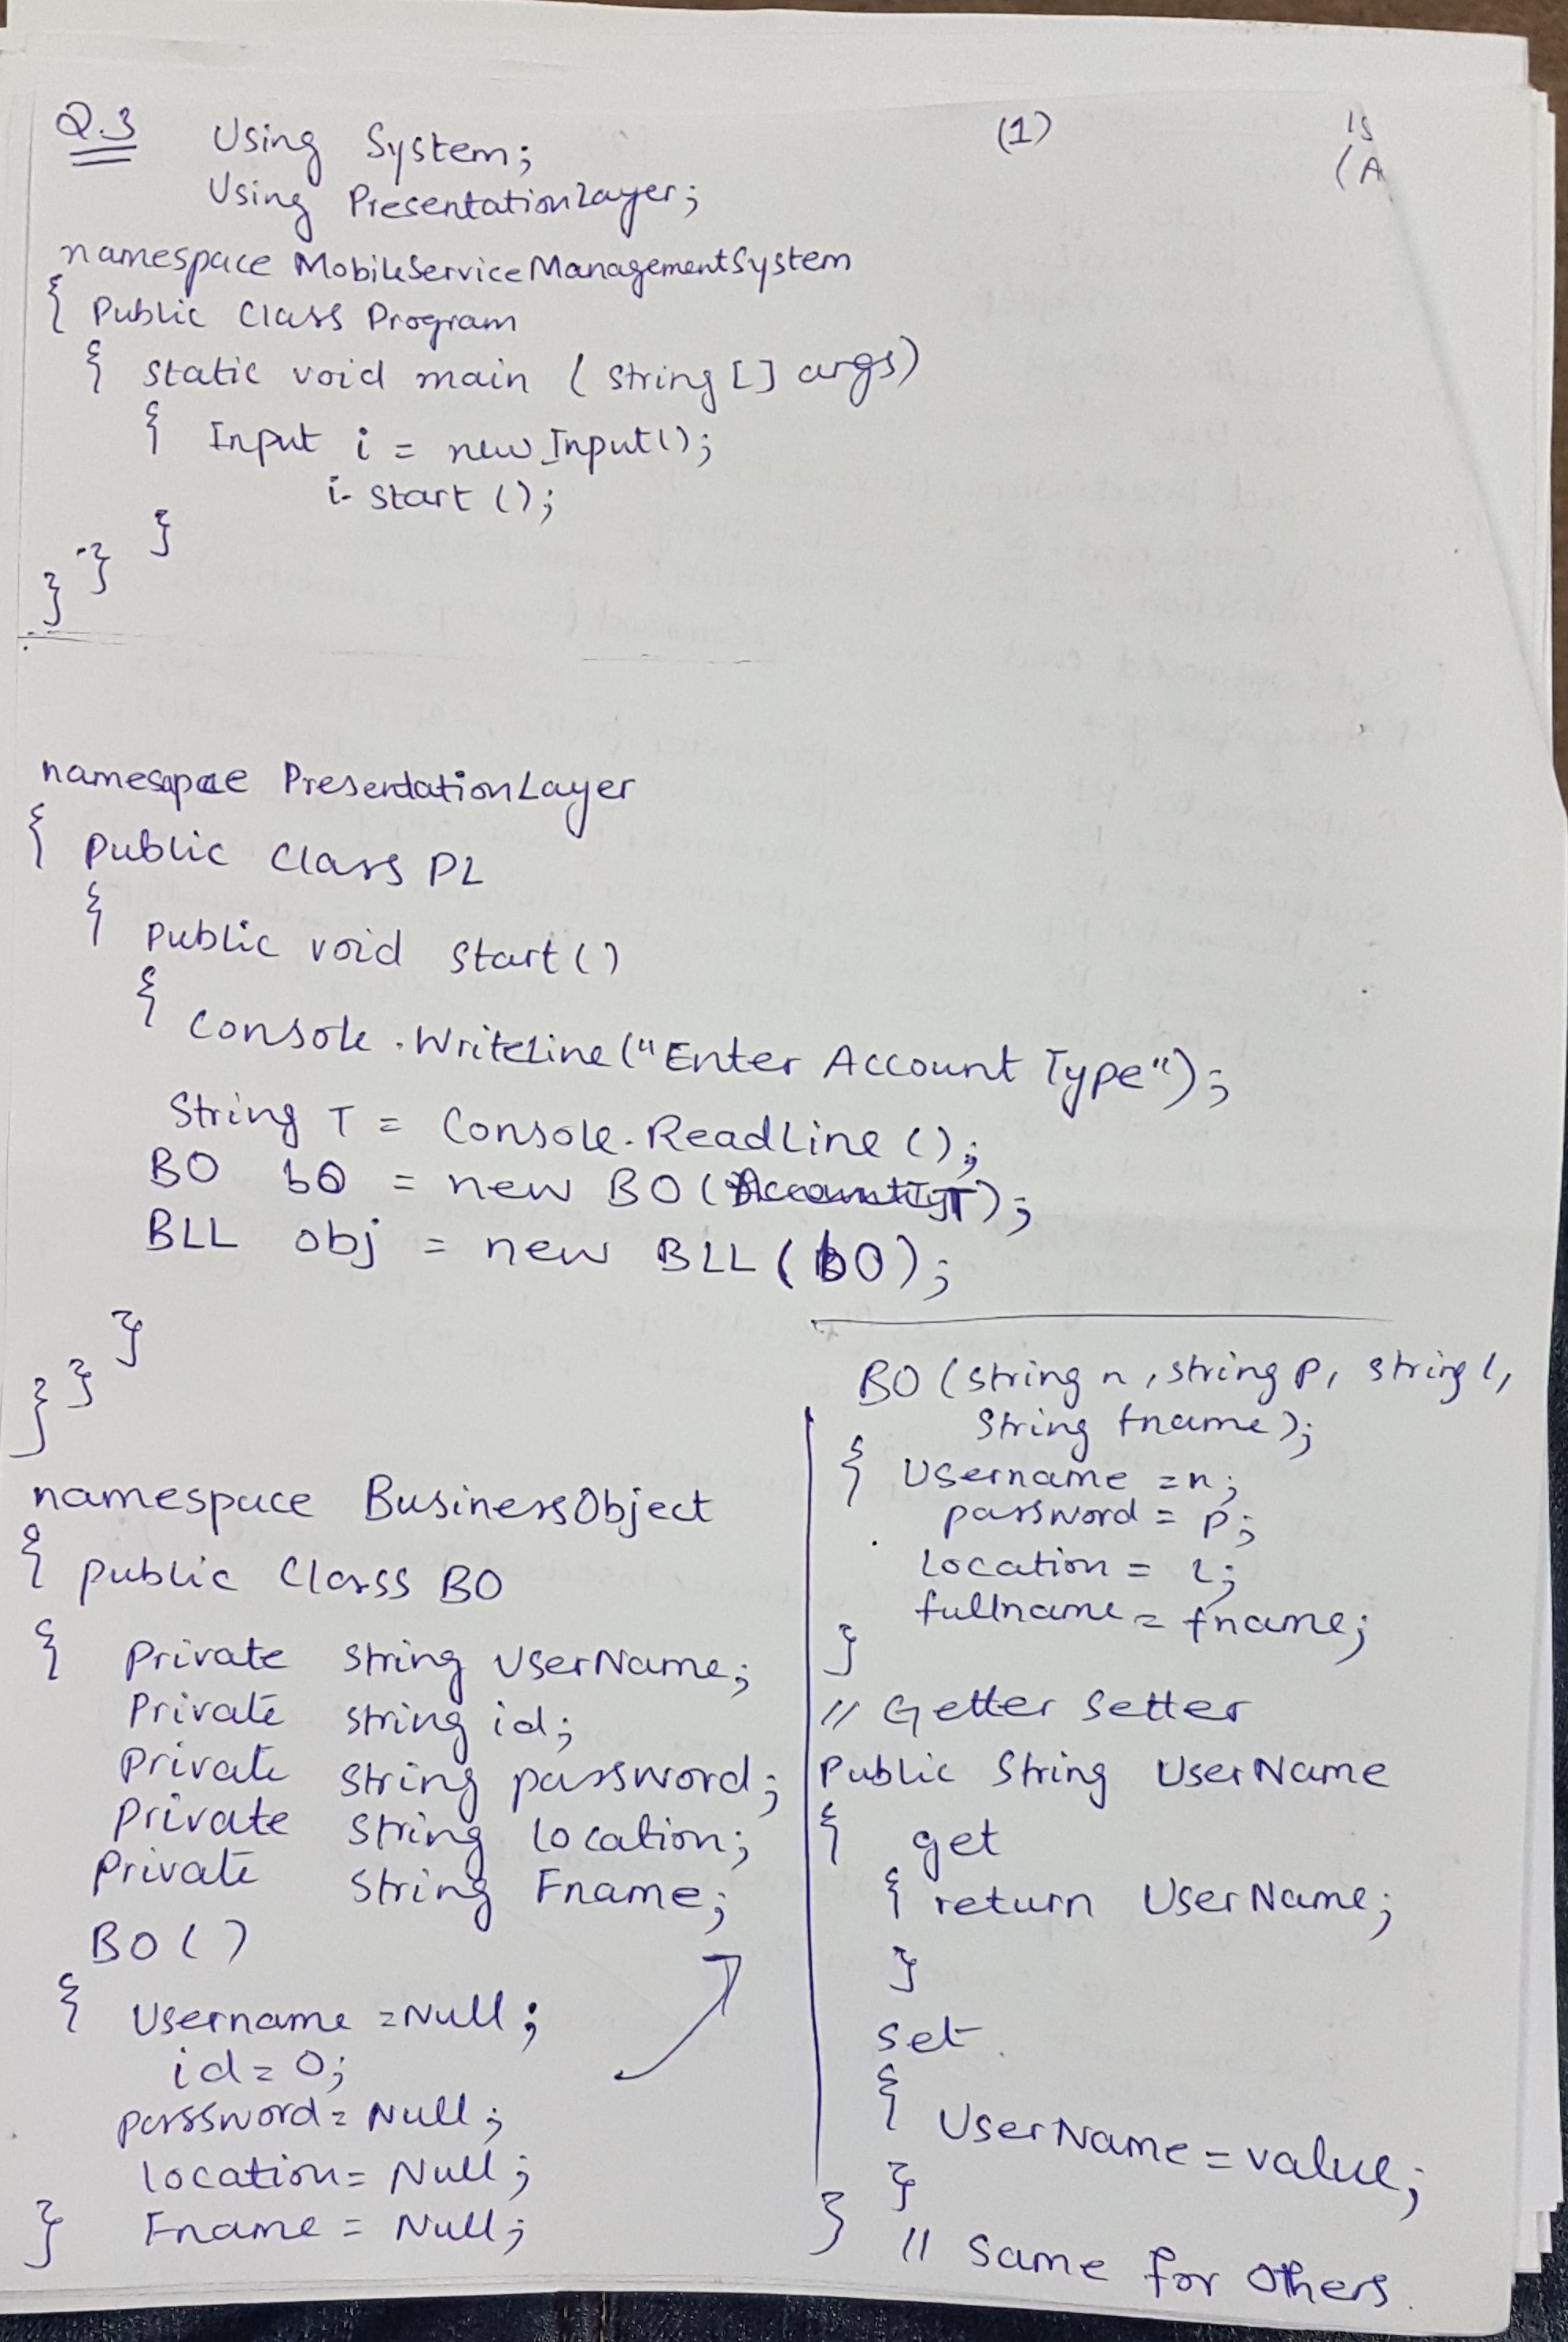 Q.3 Using System; (1)
Using PresentationLayer;
namespace MobileServiceManagementSystem
{ Public Class Program
{ static void main (string [] args)
{ Input i = new Input();
i. start ();
}
}
}
namesapace PresentationLayer
{ public Class PL
{
public void start ()
{
Console .WriteLine("Enter Account Type");
String T = Console.ReadLine ();
BO bO = new BO (T);
BLL obj = new BLL (bO);
}
}
}
namespace BusinessObject
{ public Class BO
{ Private String UserName;
Private string id;
Private String password;
Private String location;
private String Fname;
BO ()
{ Username = Null;
id = 0;
password = Null;
location = Null;
} Fname = Null;
BO (string n, string p, string l,
String fname);
{ Username = n;
password = p;
location = l;
fullname = fname;
}
// Getter Setter
Public String UserName
{ get
{ return UserName;
}
set
{ UserName = value;
}
} // Same for Others.